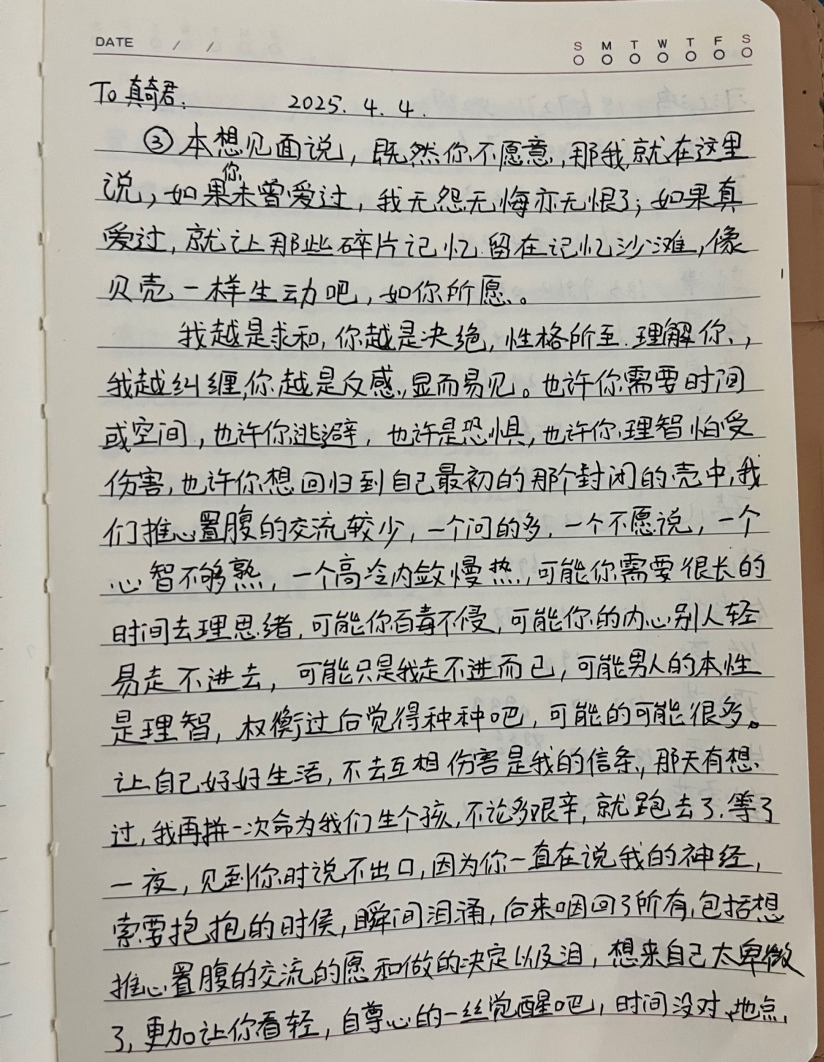 DATE / /
S M T W T F S
To 真奇君: 2025.4.4.
③本想见面说,既然你不愿意,那我就在这里
说,如果你未曾爱过,我无怨无悔亦无恨了;如果真
爱过,就让那些碎片记忆留在记忆沙滩,像
贝壳一样生动吧,如你所愿。
我越是求和,你越是决绝,性格所至.理解你,
我越纠缠,你越是反感,显而易见。也许你需要时间
或空间,也许你逃避,也许是恐惧,也许你理智怕受
伤害,也许你想回归到自己最初的那个封闭的壳中,我
们推心置腹的交流较少,一个问的多,一个不愿说,一个
心智不够熟,一个高冷内敛慢热,可能你需要很长的
时间去理思绪,可能你百毒不侵,可能你的内心别人轻
易走不进去,可能只是我走不进而已,可能男人的本性
是理智,权衡过后觉得种种吧,可能的可能很多。
让自己好好生活,不去互相伤害是我的信条,那天有想
过,我再拼一次命为我们生个孩,不论多艰辛,就跑去了.等了
一夜,见到你时说不出口,因为你一直在说我的神经,
索要抱抱的时侯,瞬间泪涌,后来咽回了所有,包括想
推心置腹的交流的愿和做的决定以及泪,想来自己太卑微
了,更加让你看轻,自尊心的一丝觉醒吧,时间没对,地点